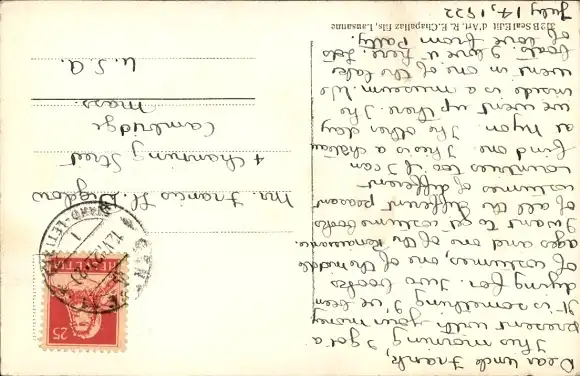 Dear Uncle Francis,
This morning I got a
present with your money
It is something I've been
dying for. Two books
of costumes, one of the middle
ages and one of the Renaissance.
I want to get costume books
of all the different peasant
costumes of different
countries too if I can
find one. This is a château
at Nyon. The other day
we went up there. The
inside is a museum. We
went in one of the lake
boats. I love it here. Lots
of love from Patty.
July 14, 1922
Mr. Francis H. Bigelow
4 Channing Street
Cambridge
Mass.
U.S.A.
HELVETIA
25
312 B Seal Edit d'Art. R. E. Chapallaz fils, Lausanne